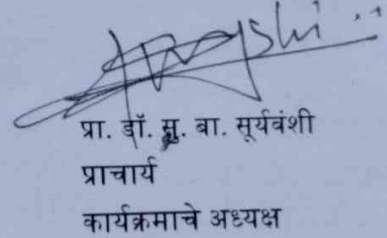 प्रा. डॉ. मु. बा. सूर्यवंशी
प्राचार्य
कार्यक्रमाचे अध्यक्ष